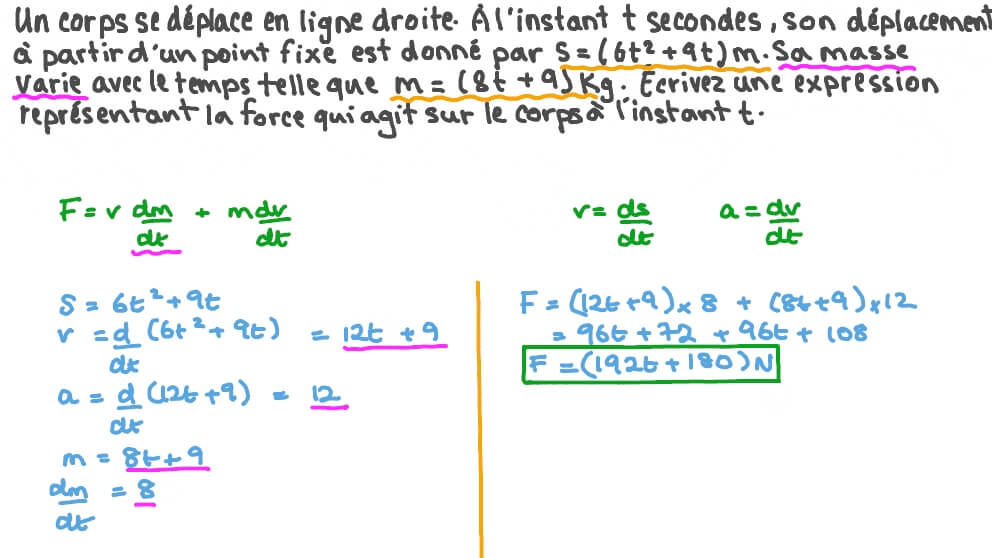 Un corps se déplace en ligne droite. À l'instant t secondes, son déplacement
à partir d'un point fixe est donné par S=(6t²+9t)m. Sa masse
varie avec le temps telle que m=(8t+9)Kg. Écrivez une expression
représentant la force qui agit sur le corps à l'instant t.
F = v dm/dt + m dv/dt
v = ds/dt a = dv/dt
S = 6t²+9t
v = d/dt (6t²+9t) = 12t+9
a = d/dt (12t+9) = 12
m = 8t+9
dm/dt = 8
F = (12t+9)×8 + (8t+9)×12
= 96t+72 + 96t+108
F = (192t+180)N